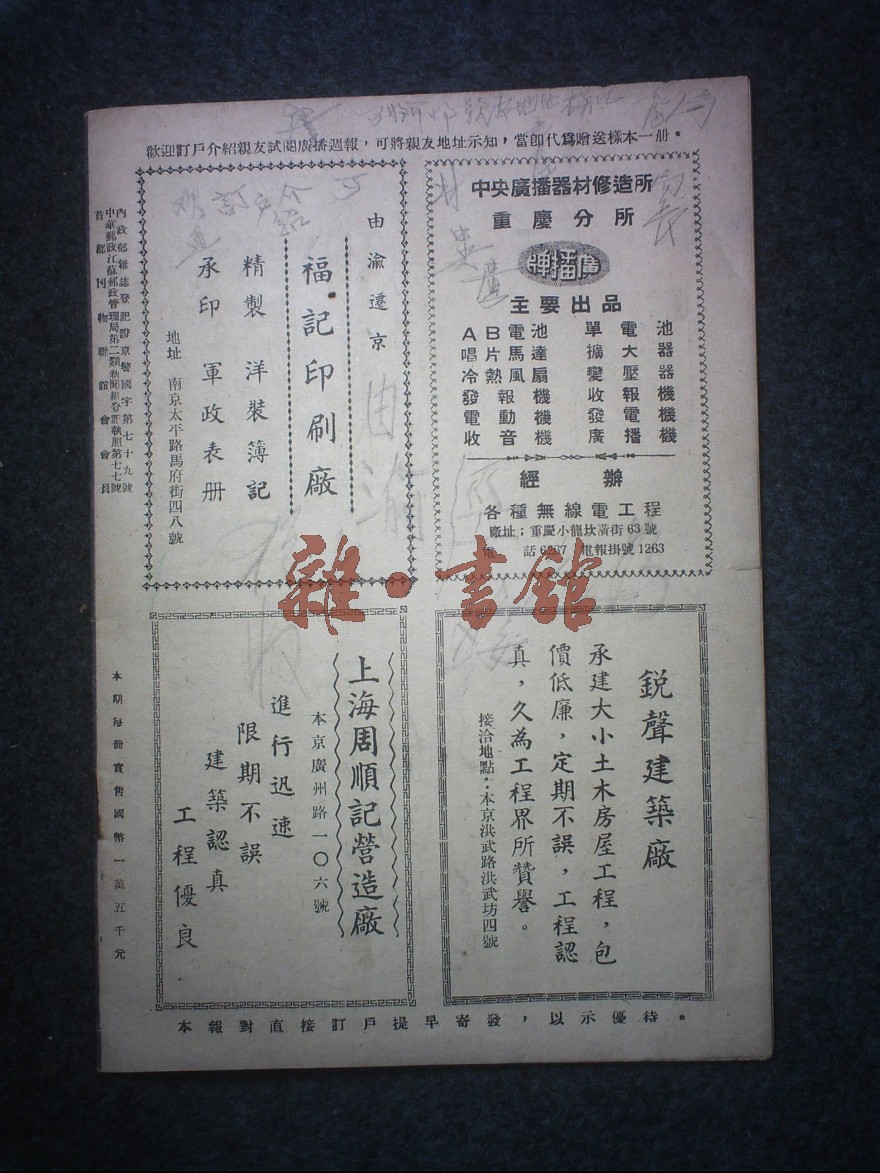 歡迎訂戶介紹親友試閱廣播週報，可將親友地址示知，當卽代爲贈送樣本一册。
中央廣播器材修造所
重慶分所
牌播廣
主要出品
AB電池 單電池
唱片馬達 擴大器
冷熱風扇 變壓器
發報機 收報機
電動機 發電機
收音機 廣播機
經辦
各種無線電工程
廠址：重慶小龍坎濱街63號
電話6267 電報掛號1263
由渝遷京
福記印刷廠
精製 洋裝簿記
承印 軍政表册
地址 南京太平路馬府街四八號
內政部雜誌登記證京警國字第七十九號
中華郵政江蘇郵政管理局第二類新聞紙登記執照第七七號
首都刊物聯誼會會員
銳聲建築廠
承建大小土木房屋工程，包
價低廉，定期不誤，工程認
真，久為工程界所贊譽。
接洽地點：本京洪武路洪武坊四號
上海周順記營造廠
本京廣州路一〇六號
進行迅速
限期不誤
建築認真
工程優良
本期每册實售國幣一萬五千元
本報對直接訂戶提早寄發，以示優待。
雜·書館